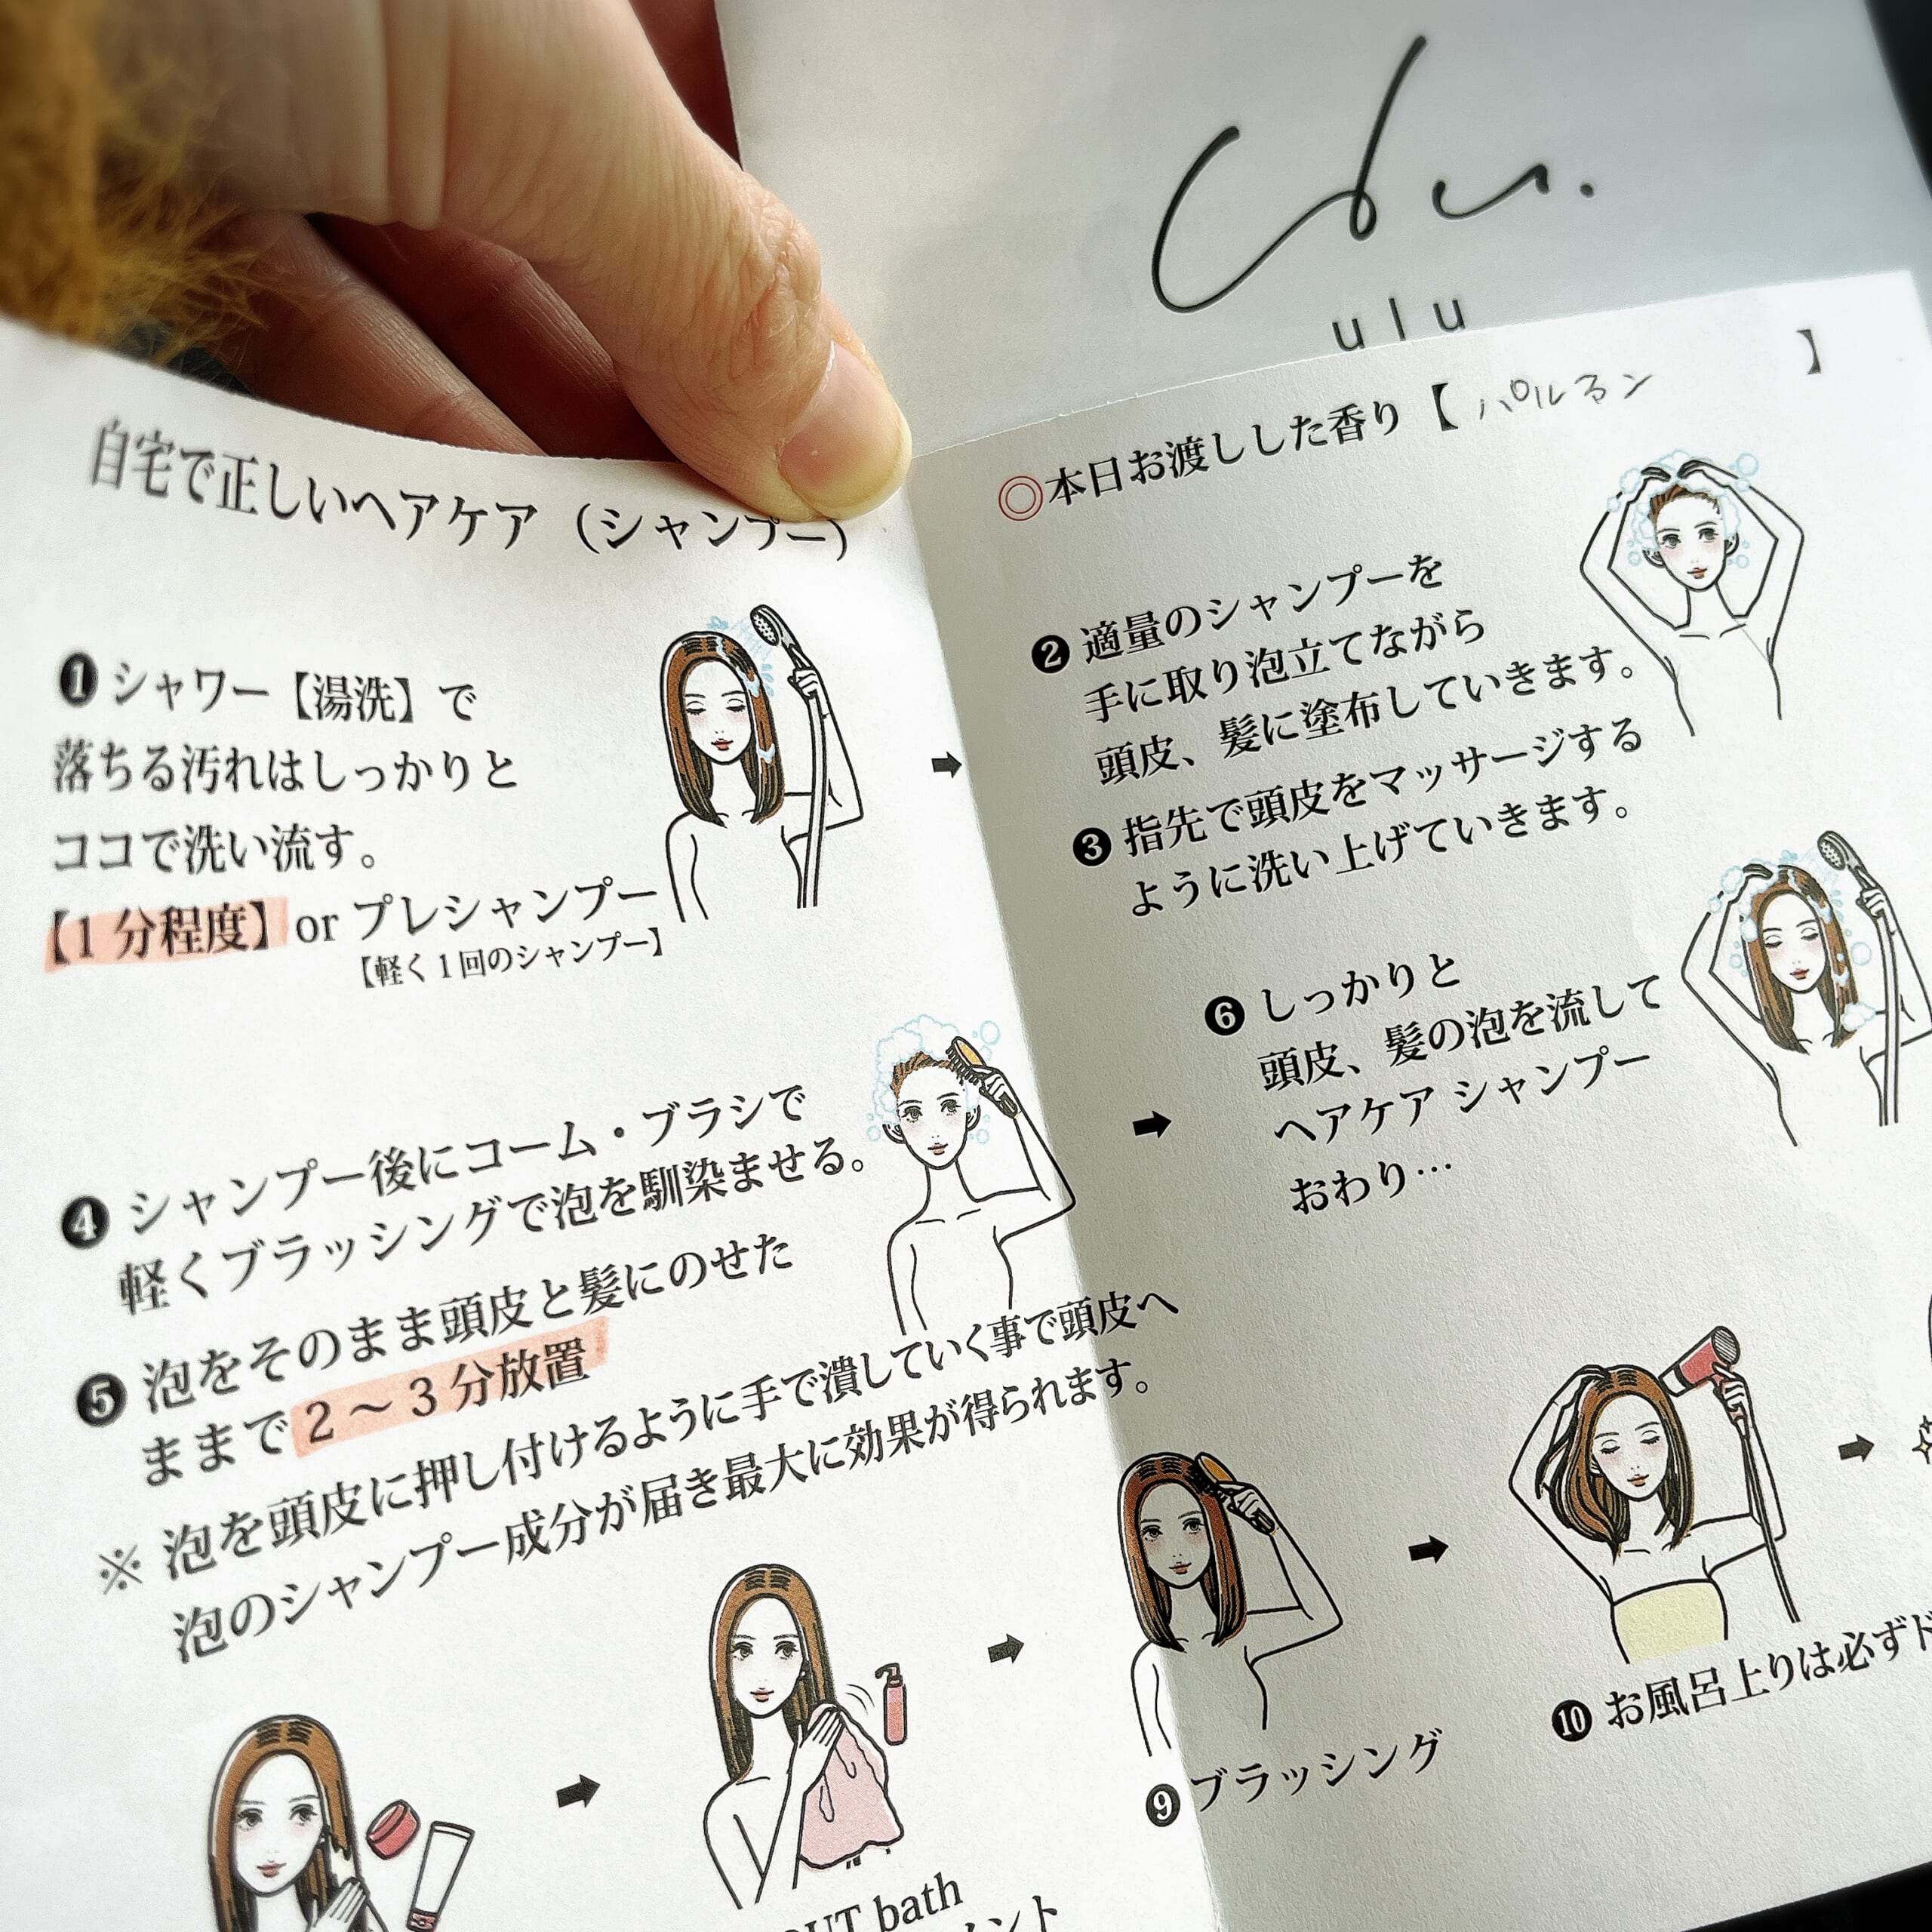 ulu
自宅で正しいヘアケア（シャンプー）
◎本日お渡しした香り【 】
❶シャワー【湯洗】で
落ちる汚れはしっかりと
ココで洗い流す。
【1分程度】or プレシャンプー
【軽く1回のシャンプー】
❷適量のシャンプーを
手に取り泡立てながら
頭皮、髪に塗布していきます。
❸指先で頭皮をマッサージする
ように洗い上げていきます。
❹シャンプー後にコーム・ブラシで
軽くブラッシングで泡を馴染ませる。
❺泡をそのまま頭皮と髪にのせた
ままで2〜3分放置
※泡を頭皮に押し付けるように手で潰していく事で頭皮へ
泡のシャンプー成分が届き最大に効果が得られます。
❻しっかりと
頭皮、髪の泡を流して
ヘアケア シャンプー
おわり…
bath
❾ブラッシング
❿お風呂上りは必ず